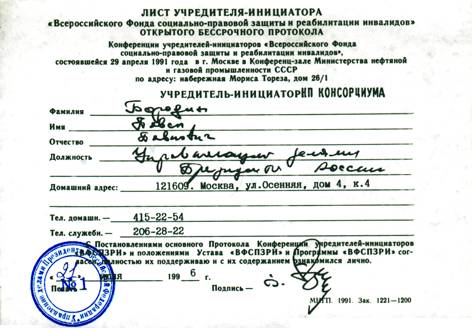 ЛИСТ УЧРЕДИТЕЛЯ-ИНИЦИАТОРА
«Всероссийского Фонда социально-правовой защиты и реабилитации инвалидов»
ОТКРЫТОГО БЕССРОЧНОГО ПРОТОКОЛА
Конференции учредителей-инициаторов «Всероссийского Фонда
социально-правовой защиты и реабилитации инвалидов»,
состоявшейся 29 апреля 1991 года в г. Москве в Конференц-зале Министерства нефтяной
и газовой промышленности СССР
по адресу: набережная Мориса Тореза, дом 26/1
УЧРЕДИТЕЛЬ-ИНИЦИАТОР НП КОНСОРЦИУМА
Фамилия Бородин
Имя Павел
Отчество Павлович
Должность Управляющий делами
Президента России
Домашний адрес: 121609. Москва, ул.Осенняя, дом 4, к.4
Тел. домашн.- 415-22-54
Тел. служебн.- 206-28-22
С Постановлениями основного Протокола Конференции учредителей-инициаторов
«ВФСПЗРИ» и положениями Устава «ВФСПЗРИ» и Программы «ВФСПЗРИ» сог-
полностью их поддерживаю и с их содержанием ознакомился лично.
21 июля 1996 г.
№1
Подпись —
МЦГП. 1991. Зак. 1221—1200